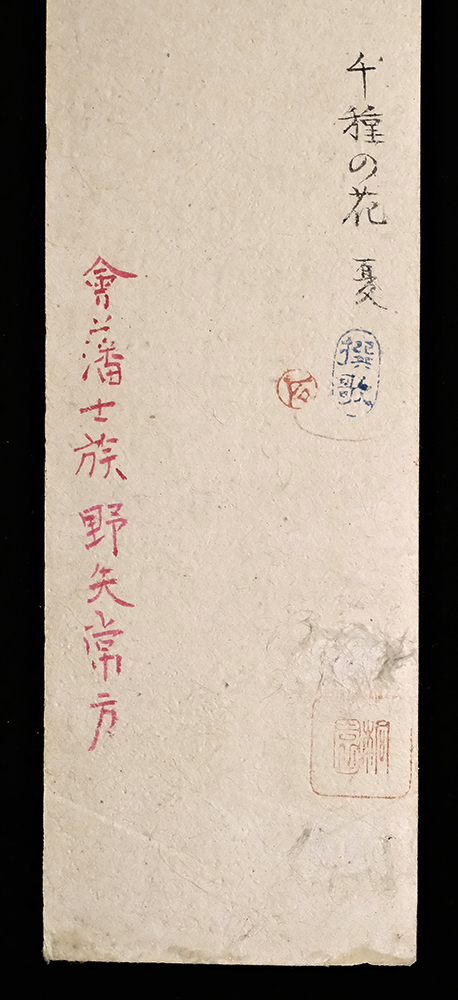 千種の花 夏
撰歌
會藩士族 野矢常方